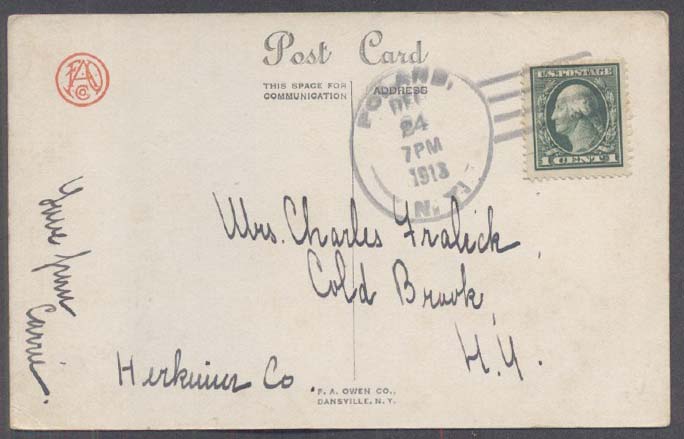 Post Card
THIS SPACE FOR
COMMUNICATION
ADDRESS
POLAND,
DEC
24
7PM
1913
N.Y.
U.S. POSTAGE
1 CENT 1
Mrs. Charles Fralick,
Cold Brook,
N.Y.
Herkimer Co.
Yours from
Carrie.
F. A. OWEN CO.,
DANSVILLE, N.Y.
FAO
Co